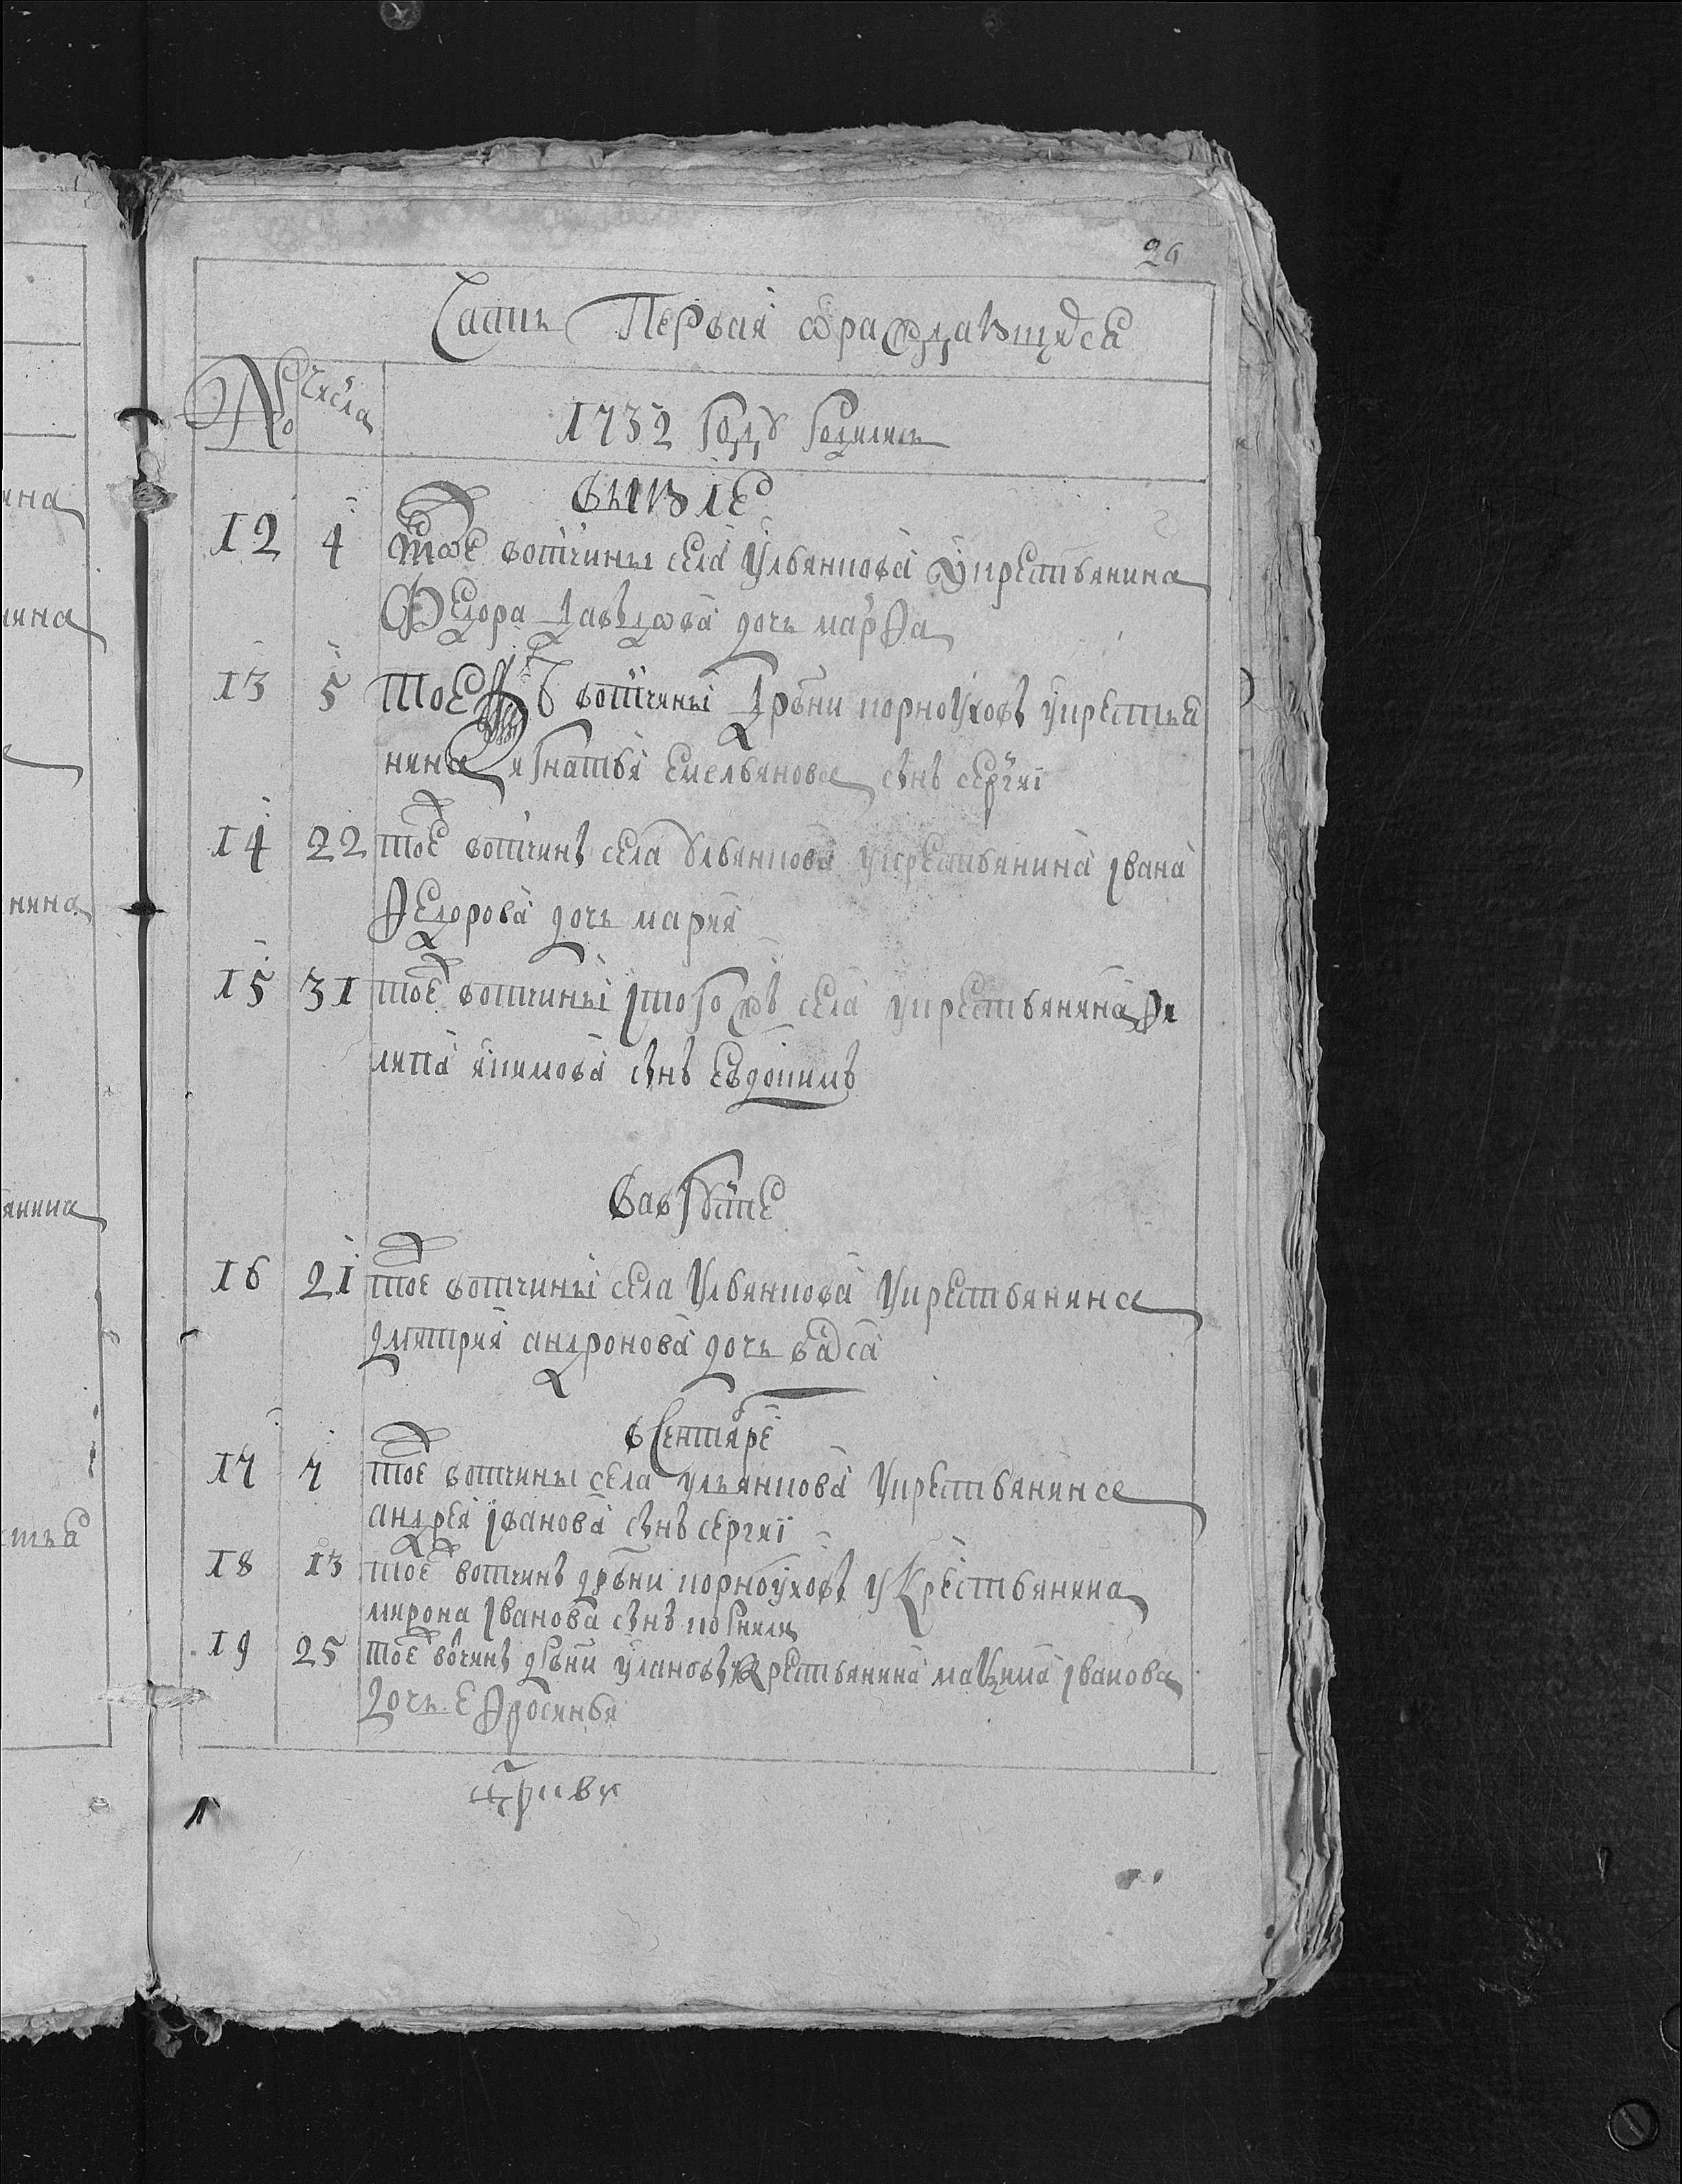 26
Часть Первая ѡраждающихся
№ Числа
1732 году родились
въ июлѣ
12 4 тоѣ вотчины села Ульянкова у крестьянина
Ѳедора Давыдова дочь марѳа
13 5 тоежъ вотчины дрвни корноуховы у крестья
нина игнатья Емельянова сынъ сергѣи
14 22 тоеж вотчины села Ульянкова у крестьянина Ивана
Ѳедорова дочь мария
15 31 тоеж вотчины села у крестьянина Ѳи
липа якимова сынъ Евдокимъ
Въ августе
16 21 тоеж вотчины села Ульянкова у крестьянина
дмитрия андронова дочь васса
в Сентябре
17 7 тоеж вотчины села ульянкова у крестьянина
андрея Иванова сынъ сергии
18 13 тоеж вотчины дрвни корноуховы у крестьянина
мирона Иванова сынъ корнили
19 25 тоеж вочины дрвни улановы у крестьянина максима Иванова
дочь Еѳросинья